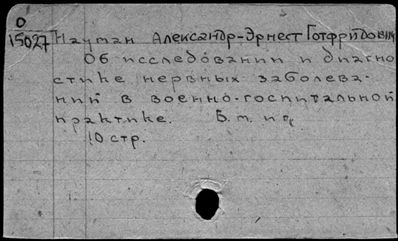 О
15027 Науман Александр-Эрнест Готфридович
Об исследовании и диагно
стике нервных заболева-
ний в военно-госпитальной
практике. Б.м. и г.
10 стр.